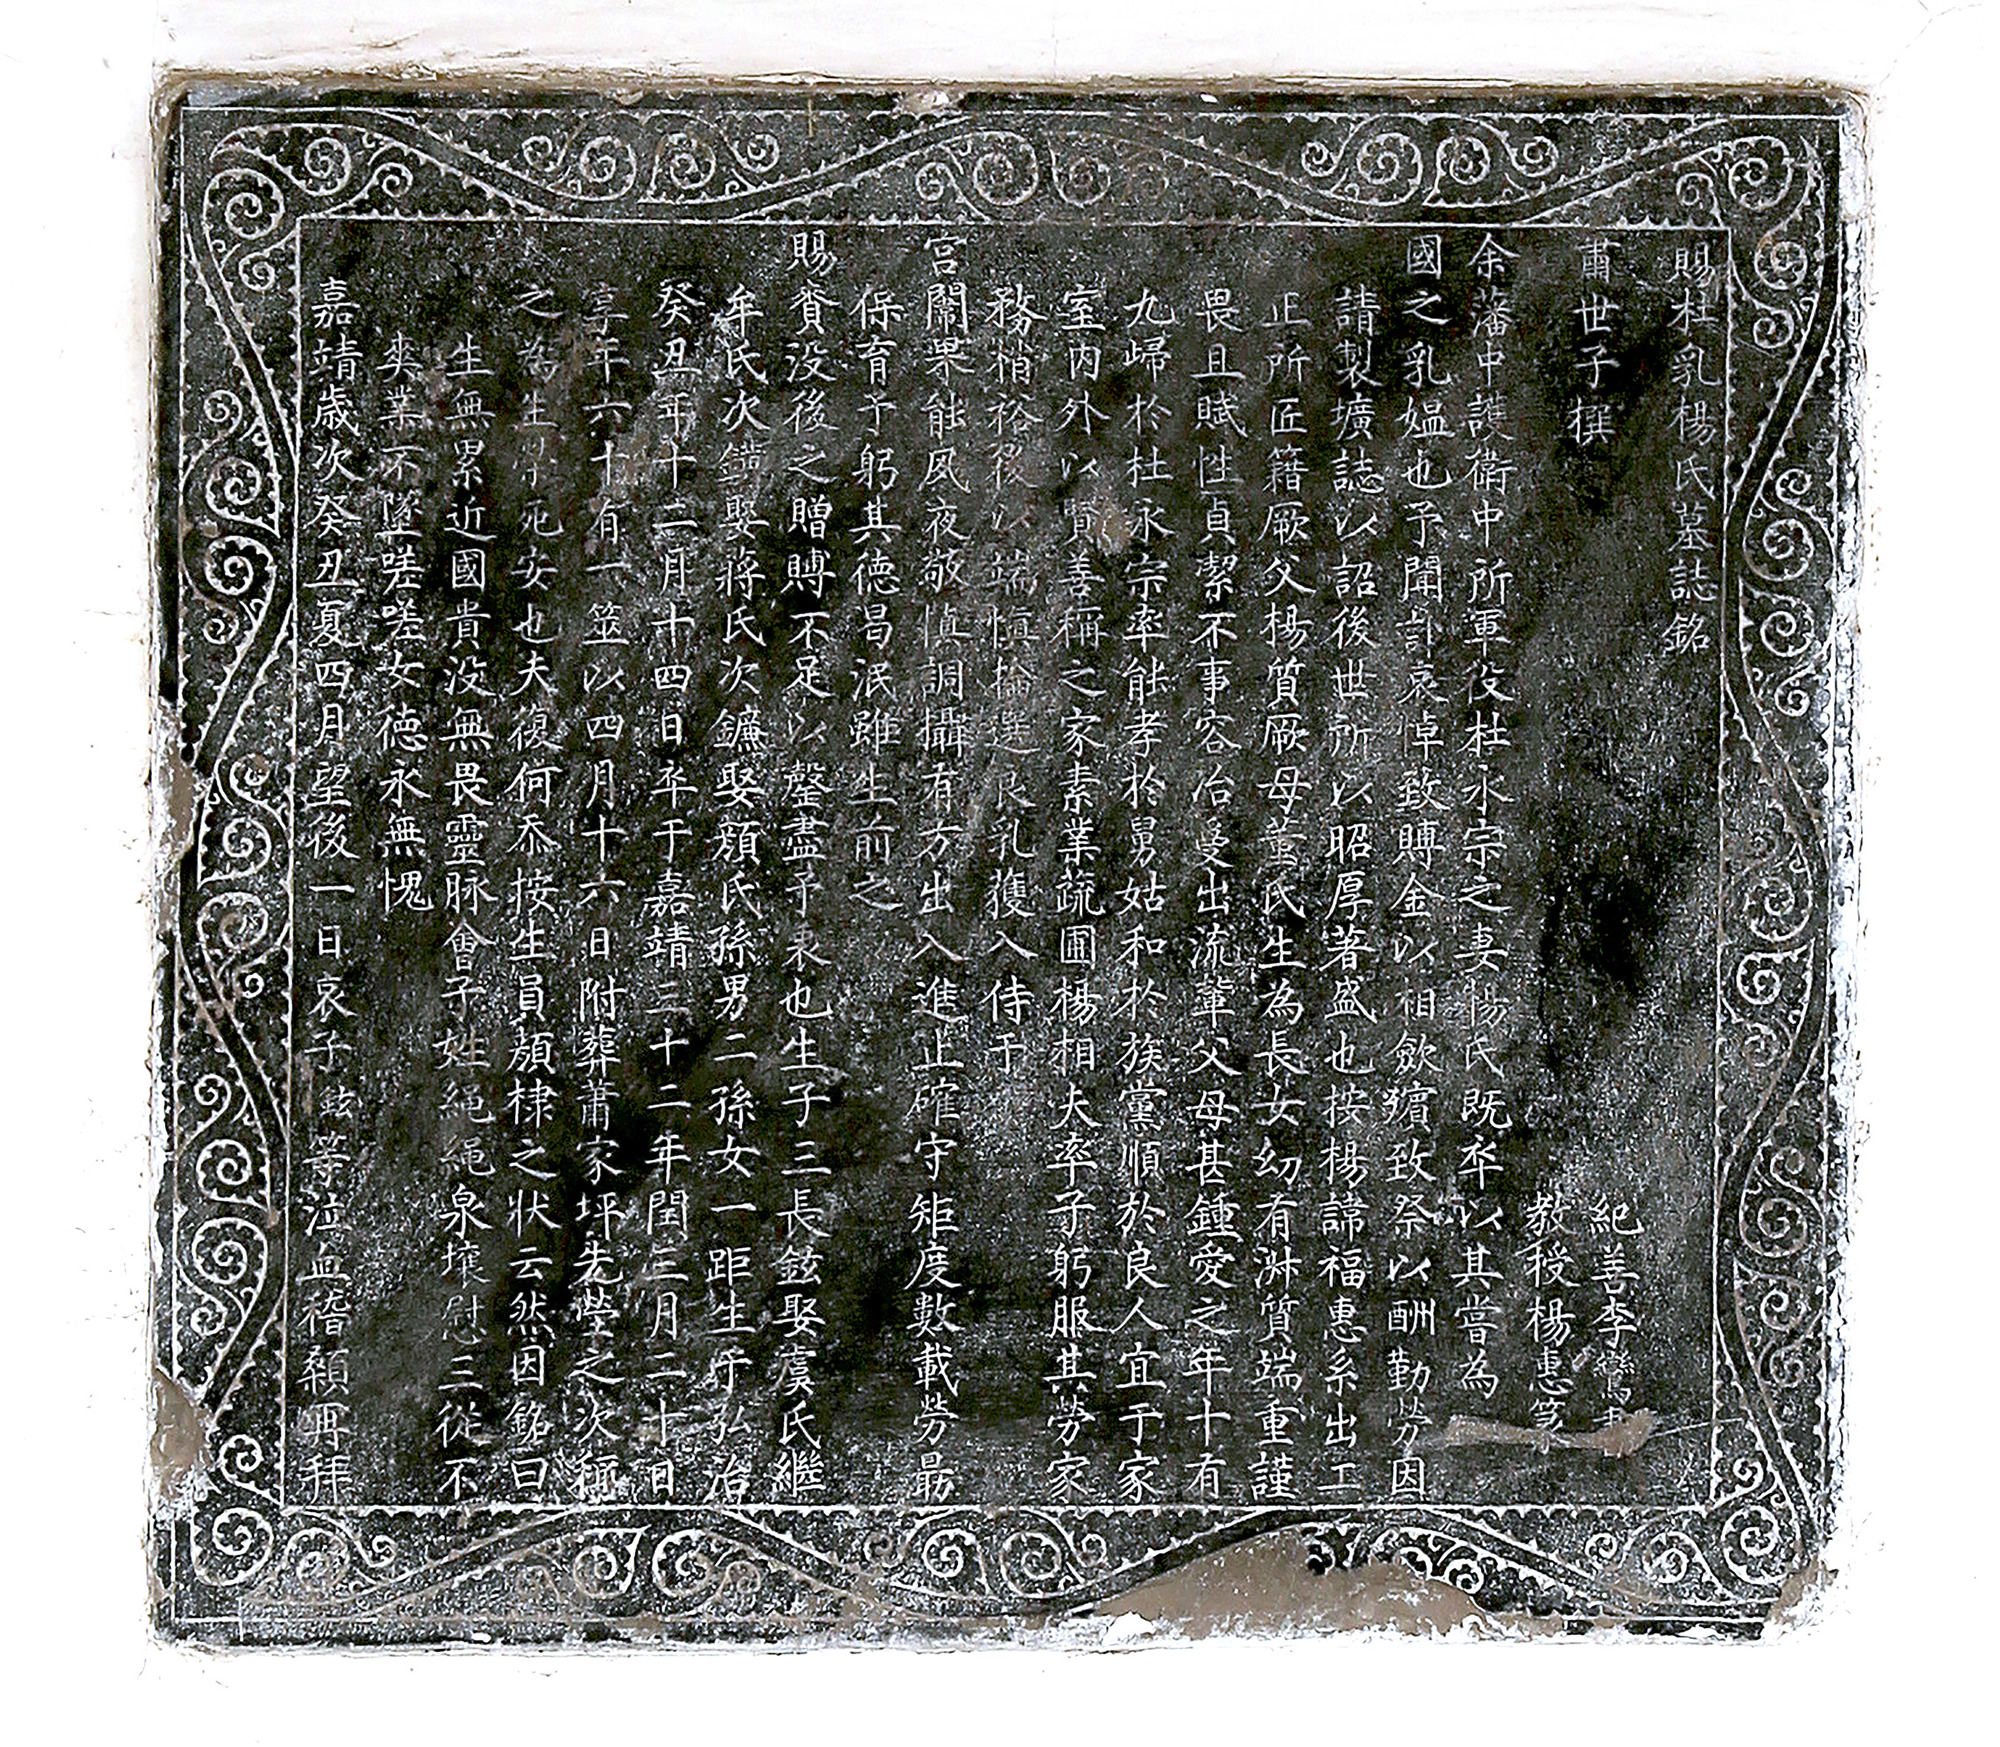 賜杜乳楊氏墓誌銘
肅世子撰
紀善李鸞書
教授楊惠篆
余藩中護衛中所軍役杜永宗之妻楊氏既卒以其嘗為
國之乳媪也予聞訃哀悼致賻金以相歛窆致祭以酬勤勞因
請製壙誌以詔後世所以昭厚著盛也按楊諱福惠系出工
正所匠籍厥父楊質厥母董氏生為長女幼有淑質端重謹
畏且賦性貞潔不事容冶受出流輩父母甚鍾愛之年十有
九歸於杜永宗率能孝於舅姑和於族黨順於良人宜于家
室內外以賢善稱之家素業蔬圃楊相夫率子躬服其勞家
務稍裕後以端慎掄選良乳獲入侍于
宮闈果能夙夜敬慎調攝有方出入進止確守矩度數載勞最
保育予躬其德曷泯雖生前之
賜賚没後之贈賻不足以罄盡予衷也生子三長鉉娶虞氏繼
牟氏次鏻娶蔣氏次鐮娶顏氏孫男二孫女一距生于弘治
癸丑年十二月十四日卒于嘉靖三十二年閏三月二十日
享年六十有一筮以四月十六日附葬蕭家坪先塋之次稱
之為生榮死安也夫復何忝按生員顏棣之狀云然因銘曰
生無累近國貴没無畏靈脉會子姓繩繩泉壤慰三從不
爽業不墜嗟嗟女德永無愧
嘉靖歲次癸丑夏四月望後一日哀子鉉等泣血稽顙再拜